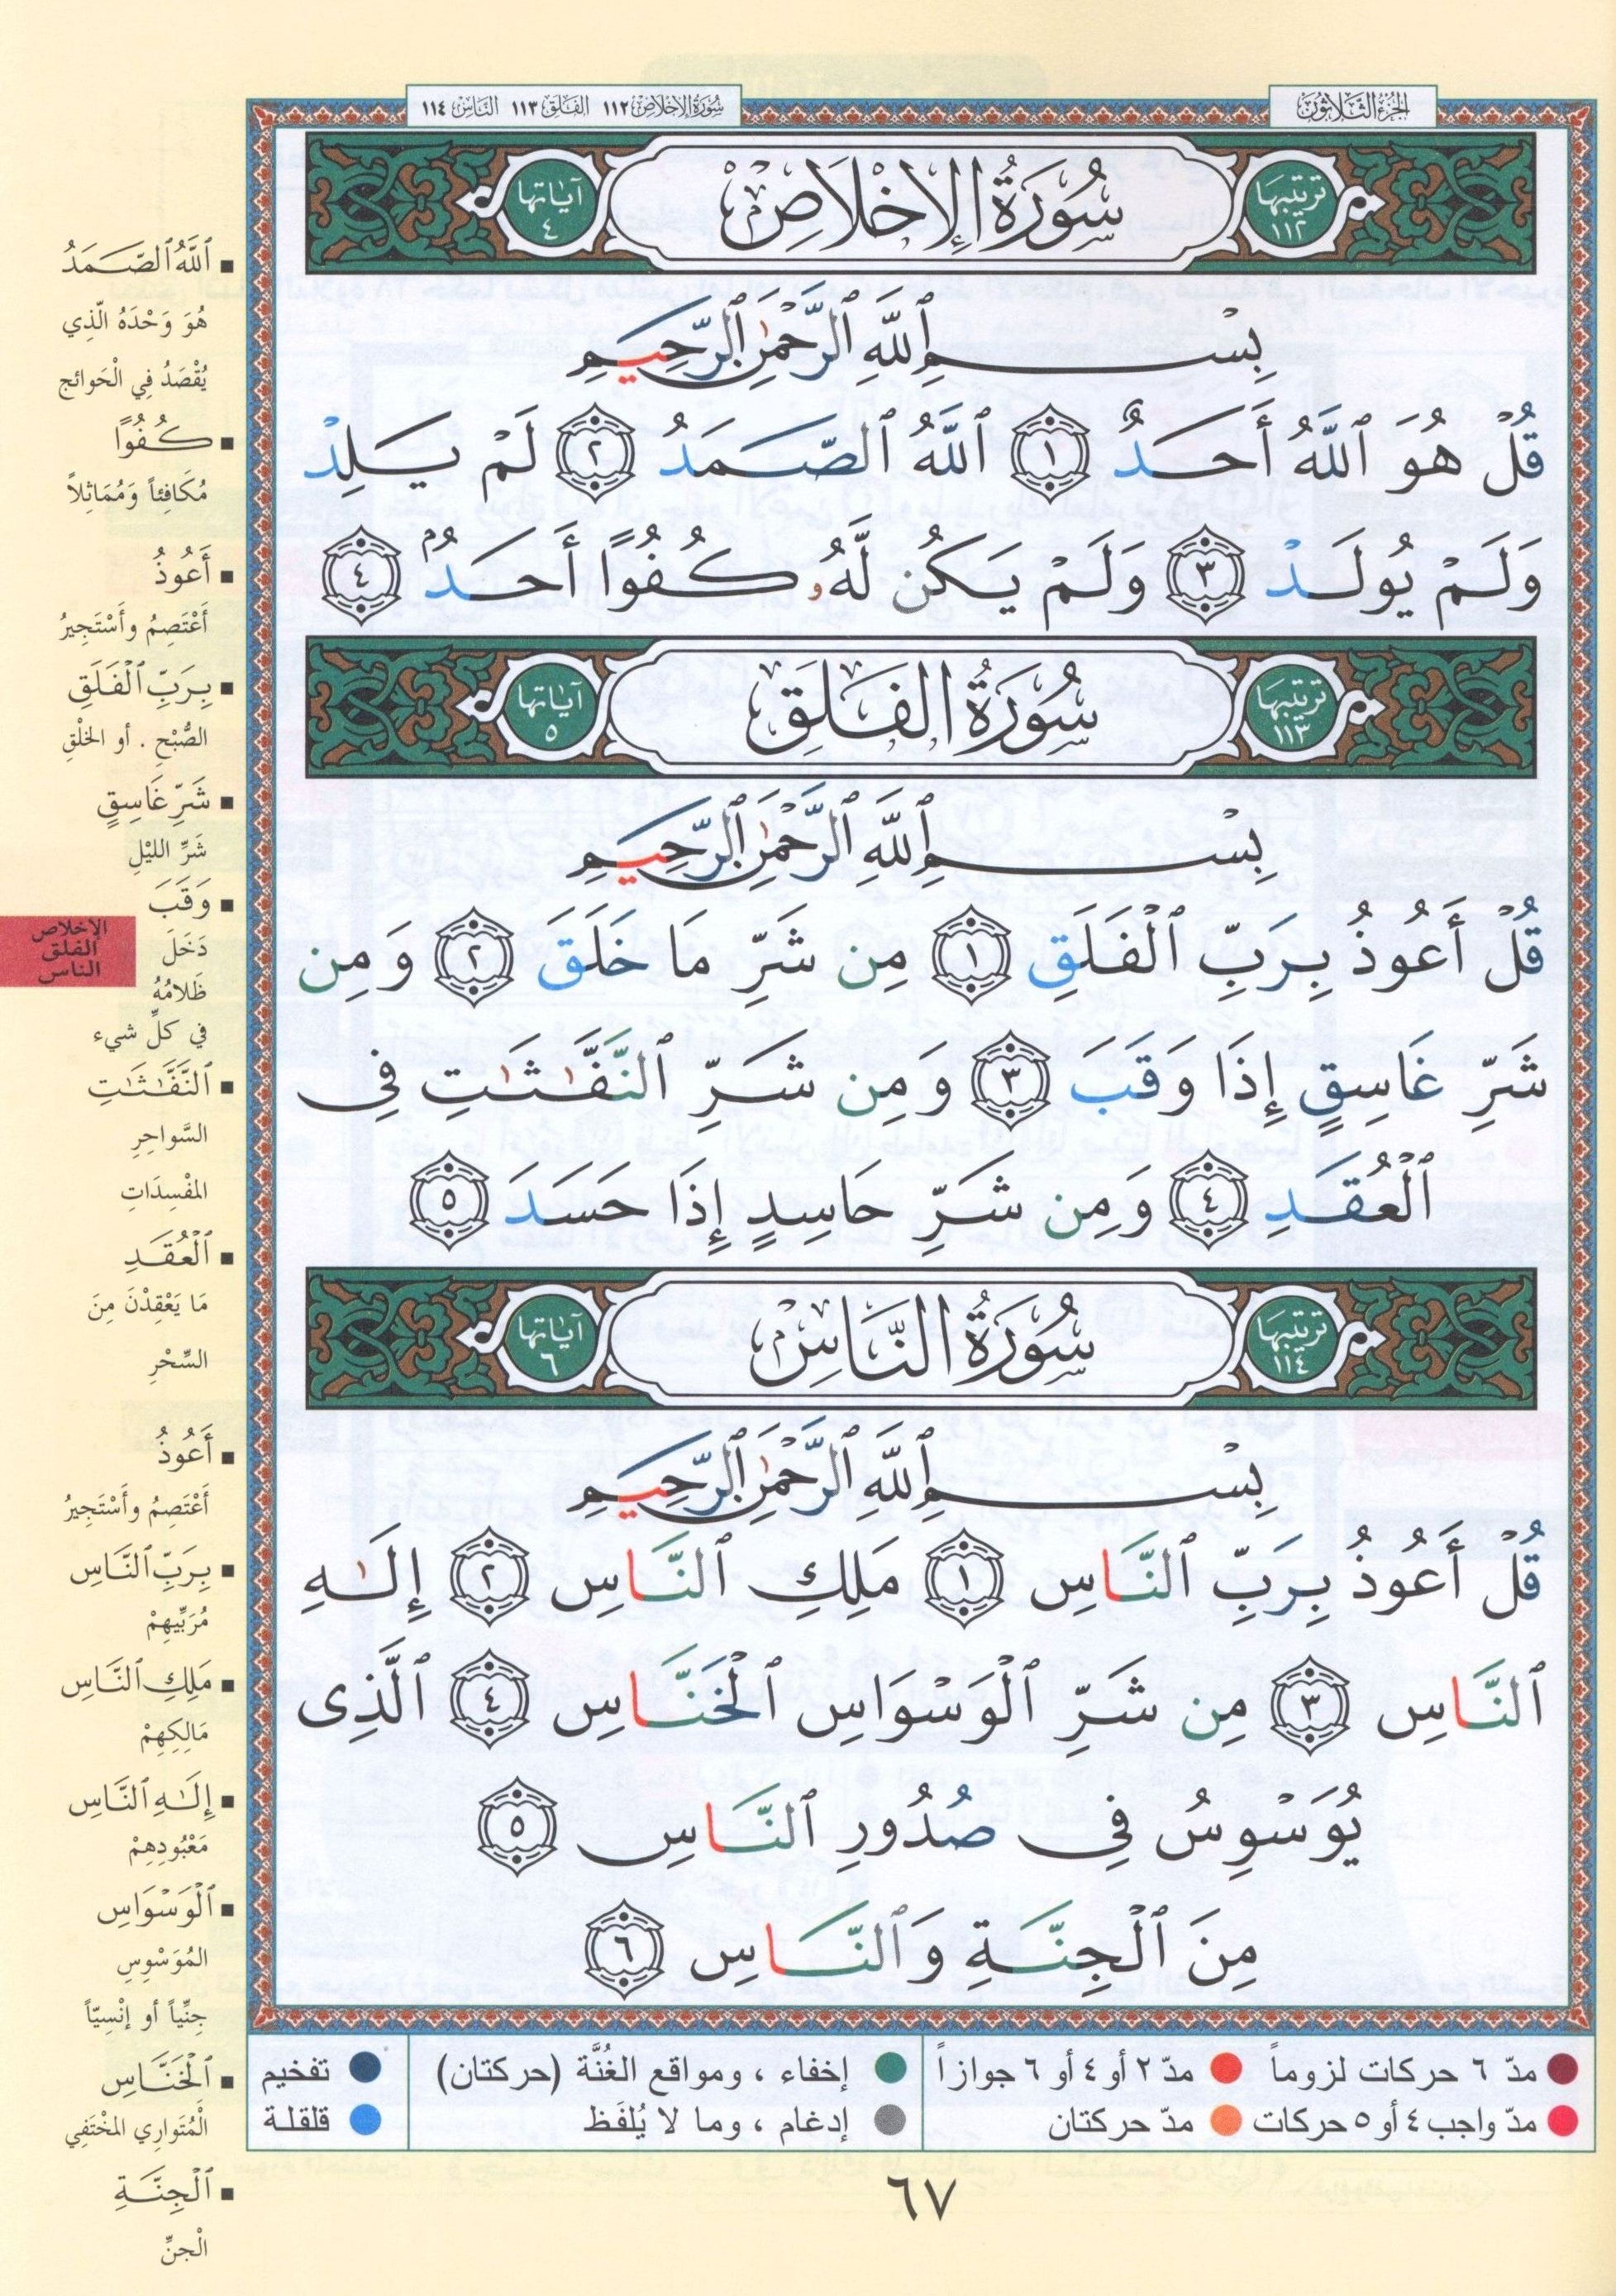 الجزء الثلاثون
سورة الإخلاص ١١٢ الفلق ١١٣ الناس ١١٤
ترتيبها ١١٢
سُورَةُ الإِخْلَاصِ
آياتها ٤
بِسْمِ ٱللَّهِ ٱلرَّحْمَٰنِ ٱلرَّحِيمِ
قُلْ هُوَ ٱللَّهُ أَحَدٌ ١ ٱللَّهُ ٱلصَّمَدُ ٢ لَمْ يَلِدْ
وَلَمْ يُولَدْ ٣ وَلَمْ يَكُن لَّهُۥ كُفُوًا أَحَدٌۢ ٤
ترتيبها ١١٣
سُورَةُ الفَلَقِ
آياتها ٥
بِسْمِ ٱللَّهِ ٱلرَّحْمَٰنِ ٱلرَّحِيمِ
قُلْ أَعُوذُ بِرَبِّ ٱلْفَلَقِ ١ مِن شَرِّ مَا خَلَقَ ٢ وَمِن
شَرِّ غَاسِقٍ إِذَا وَقَبَ ٣ وَمِن شَرِّ ٱلنَّفَّٰثَٰتِ فِى
ٱلْعُقَدِ ٤ وَمِن شَرِّ حَاسِدٍ إِذَا حَسَدَ ٥
ترتيبها ١١٤
سُورَةُ النَّاسِ
آياتها ٦
بِسْمِ ٱللَّهِ ٱلرَّحْمَٰنِ ٱلرَّحِيمِ
قُلْ أَعُوذُ بِرَبِّ ٱلنَّاسِ ١ مَلِكِ ٱلنَّاسِ ٢ إِلَٰهِ
ٱلنَّاسِ ٣ مِن شَرِّ ٱلْوَسْوَاسِ ٱلْخَنَّاسِ ٤ ٱلَّذِى
يُوَسْوِسُ فِى صُدُورِ ٱلنَّاسِ ٥
مِنَ ٱلْجِنَّةِ وَٱلنَّاسِ ٦
ٱللَّهُ ٱلصَّمَدُ
هُوَ وَحْدَهُ الَّذِي
يُقْصَدُ فِي الْحَوائج
كُفُوًا
مُكَافِئاً وَمُمَاثِلاً
أَعُوذُ
أَعْتَصِمُ وأَسْتَجِيرُ
بِرَبِّ ٱلْفَلَقِ
الصُّبْحِ . أو الخلْقِ
شَرِّ غَاسِقٍ
شَرِّ الليْلِ
وَقَبَ
دَخَلَ
ظَلامُهُ
في كلِّ شيء
ٱلنَّفَّٰثَٰتِ
السَّواحِرِ
المفْسِدَاتِ
ٱلْعُقَدِ
مَا يَعْقِدْنَ مِنَ
السِّحْرِ
أَعُوذُ
أَعْتَصِمُ وأَسْتَجِيرُ
بِرَبِّ ٱلنَّاسِ
مُرَبِّيهِمْ
مَلِكِ ٱلنَّاسِ
مَالِكِهِمْ
إِلَٰهِ ٱلنَّاسِ
مَعْبُودِهِمْ
ٱلْوَسْوَاسِ
المُوَسْوِسِ
جِنِّياً أو إنْسِيّاً
ٱلْخَنَّاسِ
الْمُتَوارِي المخْتَفِي
ٱلْجِنَّةِ
الْجنِّ
الإخلاص
الفلق
الناس
مدّ ٦ حركات لزوماً مدّ ٢ أو ٤ أو ٦ جوازاً إخفاء ، ومواقع الغُنَّة (حركتان) تفخيم
مدّ واجب ٤ أو ٥ حركات مدّ حركتان إدغام ، وما لا يُلفَظ قلقلة
٦٧